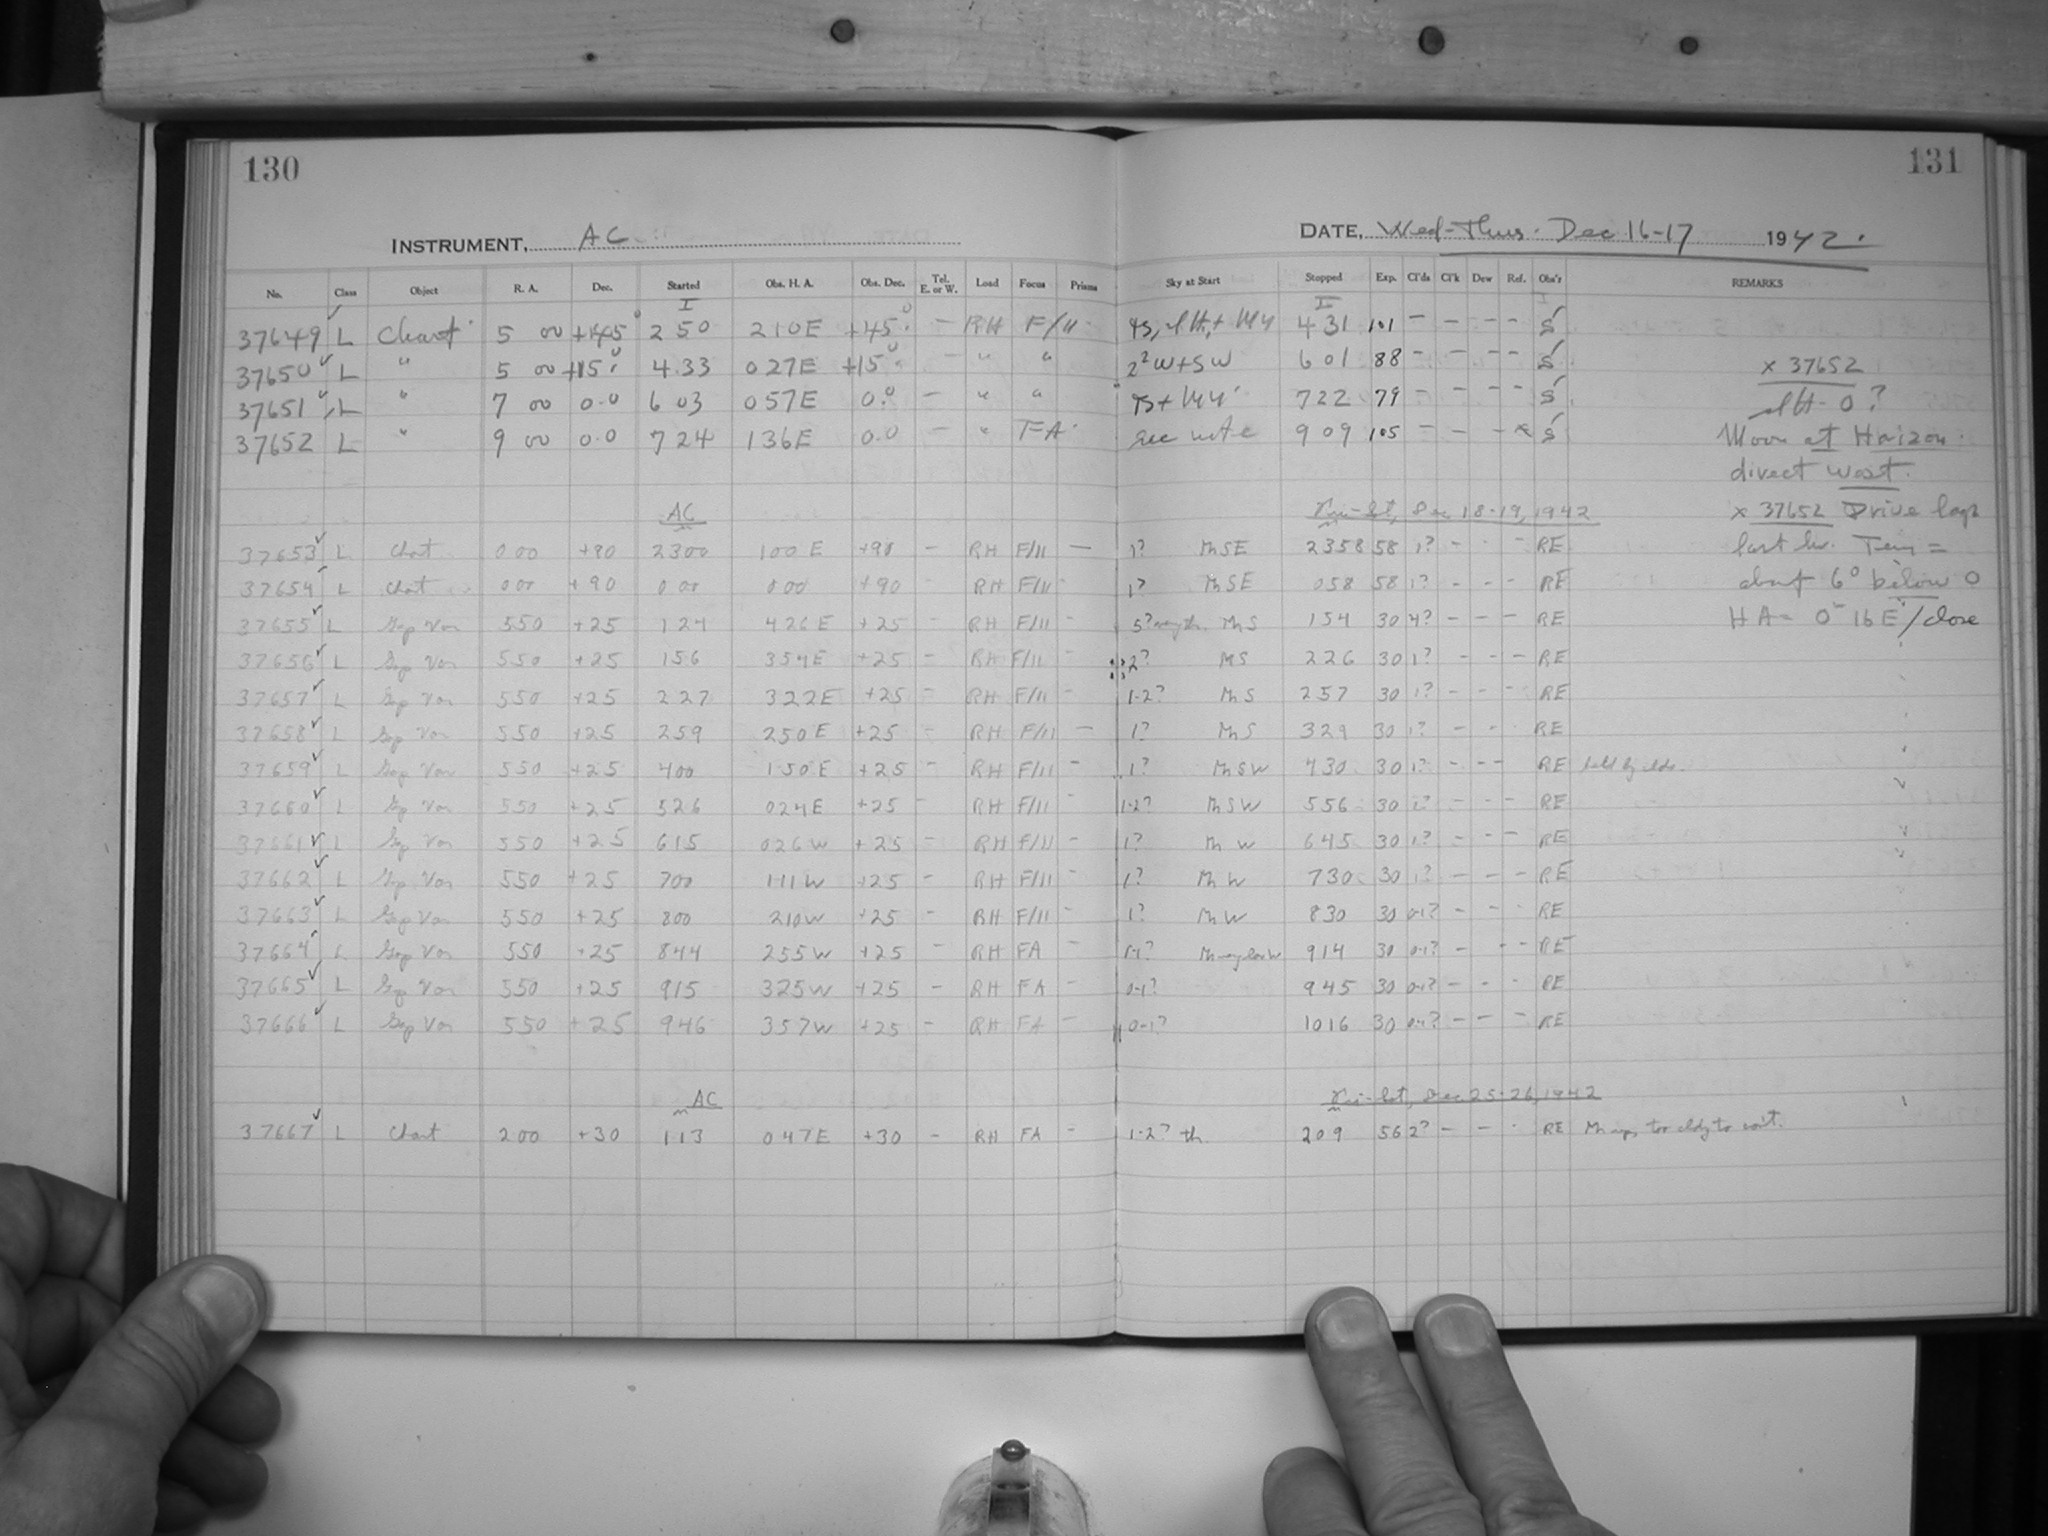 130
131
INSTRUMENT, AC
DATE, Wed-Thurs. Dec 16-17 1942.
No. Class Object R. A. Dec. Started Obs. H. A. Obs. Dec. Tel. E. or W. Load Focus Prisms Sky at Start Stopped Exp. Cl'ds Cl'k Dew Ref. Obs'r REMARKS
37649 L Chart 5 00 +45° 2 50 2 10 E +45° - RH F/11 4 31 101 - - - - S
37650 L " 5 00 +15° 4 33 0 27 E +15° - " " 2² W + SW 6 01 88 - - - - S x 37652
37651 L " 7 00 0.0 6 03 0 57 E 0.0 - " " 7 22 79 - - - - S 0?
37652 L " 9 00 0.0 7 24 1 36 E 0.0 - " FA see note 9 09 105 - - - x S Moon at Horizon.
direct west.
AC Fri-Sat, Dec 18-19, 1942 x 37652 Drive lags
37653 L Chart 0 00 +90 23 00 1 00 E +90 - RH F/11 - 1? M SE 23 58 58 1? - - - RE last hr. Temp =
37654 L Chart 0 00 +90 0 00 0 00 +90 - RH F/11 - 1? M SE 0 58 58 1? - - - RE about 6° below 0
37655 L Gap Var 5 50 +25 1 24 4 26 E +25 - RH F/11 - 5? M S 1 54 30 4? - - - RE HA = 0 16 E / close
37656 L Gap Var 5 50 +25 1 56 3 54 E +25 - RH F/11 - 2? M S 2 26 30 1? - - - RE
37657 L Gap Var 5 50 +25 2 27 3 22 E +25 - RH F/11 - 1-2? M S 2 57 30 1? - - - RE
37658 L Gap Var 5 50 +25 2 59 2 50 E +25 - RH F/11 - 1? M S 3 29 30 1? - - - RE
37659 L Gap Var 5 50 +25 4 00 1 50 E +25 - RH F/11 - 1? M SW 4 30 30 1? - - - RE held by clds.
37660 L Gap Var 5 50 +25 5 26 0 24 E +25 - RH F/11 - 1-2? M SW 5 56 30 1? - - - RE
37661 L Gap Var 5 50 +25 6 15 0 26 W +25 - RH F/11 - 1? M W 6 45 30 1? - - - RE
37662 L Gap Var 5 50 +25 7 00 1 11 W +25 - RH F/11 - 1? M W 7 30 30 1? - - - RE
37663 L Gap Var 5 50 +25 8 00 2 10 W +25 - RH F/11 - 1? M W 8 30 30 0-1? - - - RE
37664 L Gap Var 5 50 +25 8 44 2 55 W +25 - RH FA - M very low W 9 14 30 0-1? - - - RE
37665 L Gap Var 5 50 +25 9 15 3 25 W +25 - RH FA - 0-1? 9 45 30 0-1? - - - RE
37666 L Gap Var 5 50 +25 9 46 3 57 W +25 - RH FA - 0-1? 10 16 30 0-1? - - - RE
AC Fri-Sat, Dec 25-26, 1942
37667 L Chart 2 00 +30 1 13 0 47 E +30 - RH FA - 1-2? th 2 09 56 2? - - - RE M up, too cldy to con't.